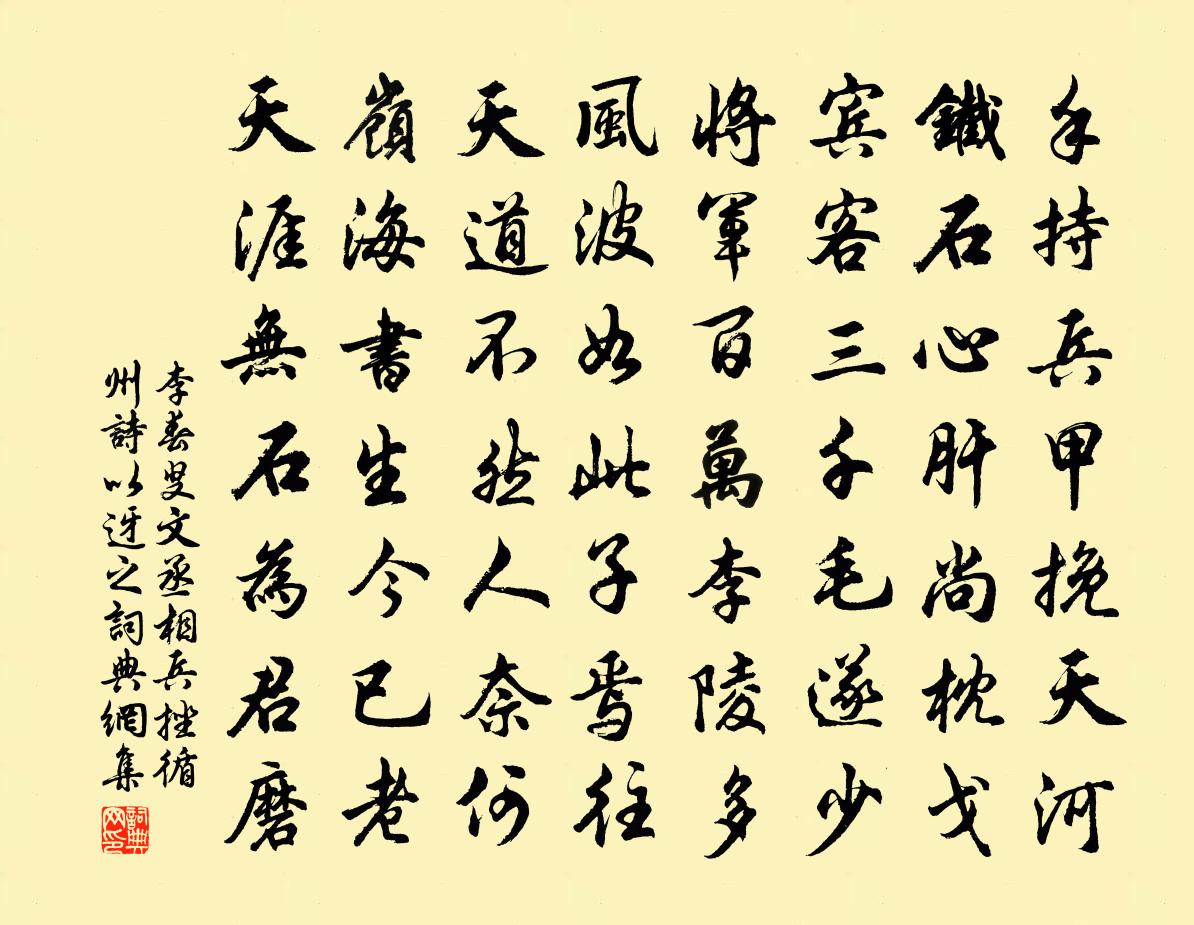 手持兵甲挽天河
鐵石心肝尚枕戈
賓客三千毛遂少
將軍百萬李陵多
風波如此子焉往
天道不然人奈何
嶺海書生今已老
天涯無石為君磨
李春叟文丞相兵挫循
州詩以迓之詞典網集
詞典網印